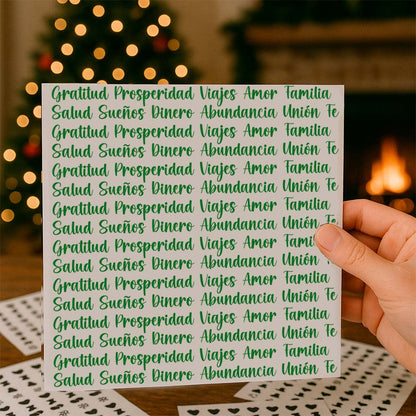 Gratitud Prosperidad Viajes Amor Familia
Salud Sueños Dinero Abundancia Unión Te
Gratitud Prosperidad Viajes Amor Familia
Salud Sueños Dinero Abundancia Unión Te
Gratitud Prosperidad Viajes Amor Familia
Salud Sueños Dinero Abundancia Unión Te
Gratitud Prosperidad Viajes Amor Familia
Salud Sueños Dinero Abundancia Unión Te
Gratitud Prosperidad Viajes Amor Famili
Salud Sueños Dinero Abundancia Unión Te
Gratitud Prosperidad Viajes Amor Familia
Salud Sueños Dinero Abundancia Unión Te
Gratitud Prosperidad Viajes Amor Familia
Salud Sueños Dinero Abundancia Unión Te
Gratitud Prosperidad Viajes Amor Familia
Salud Sueños Dinero Abundancia Unión Te